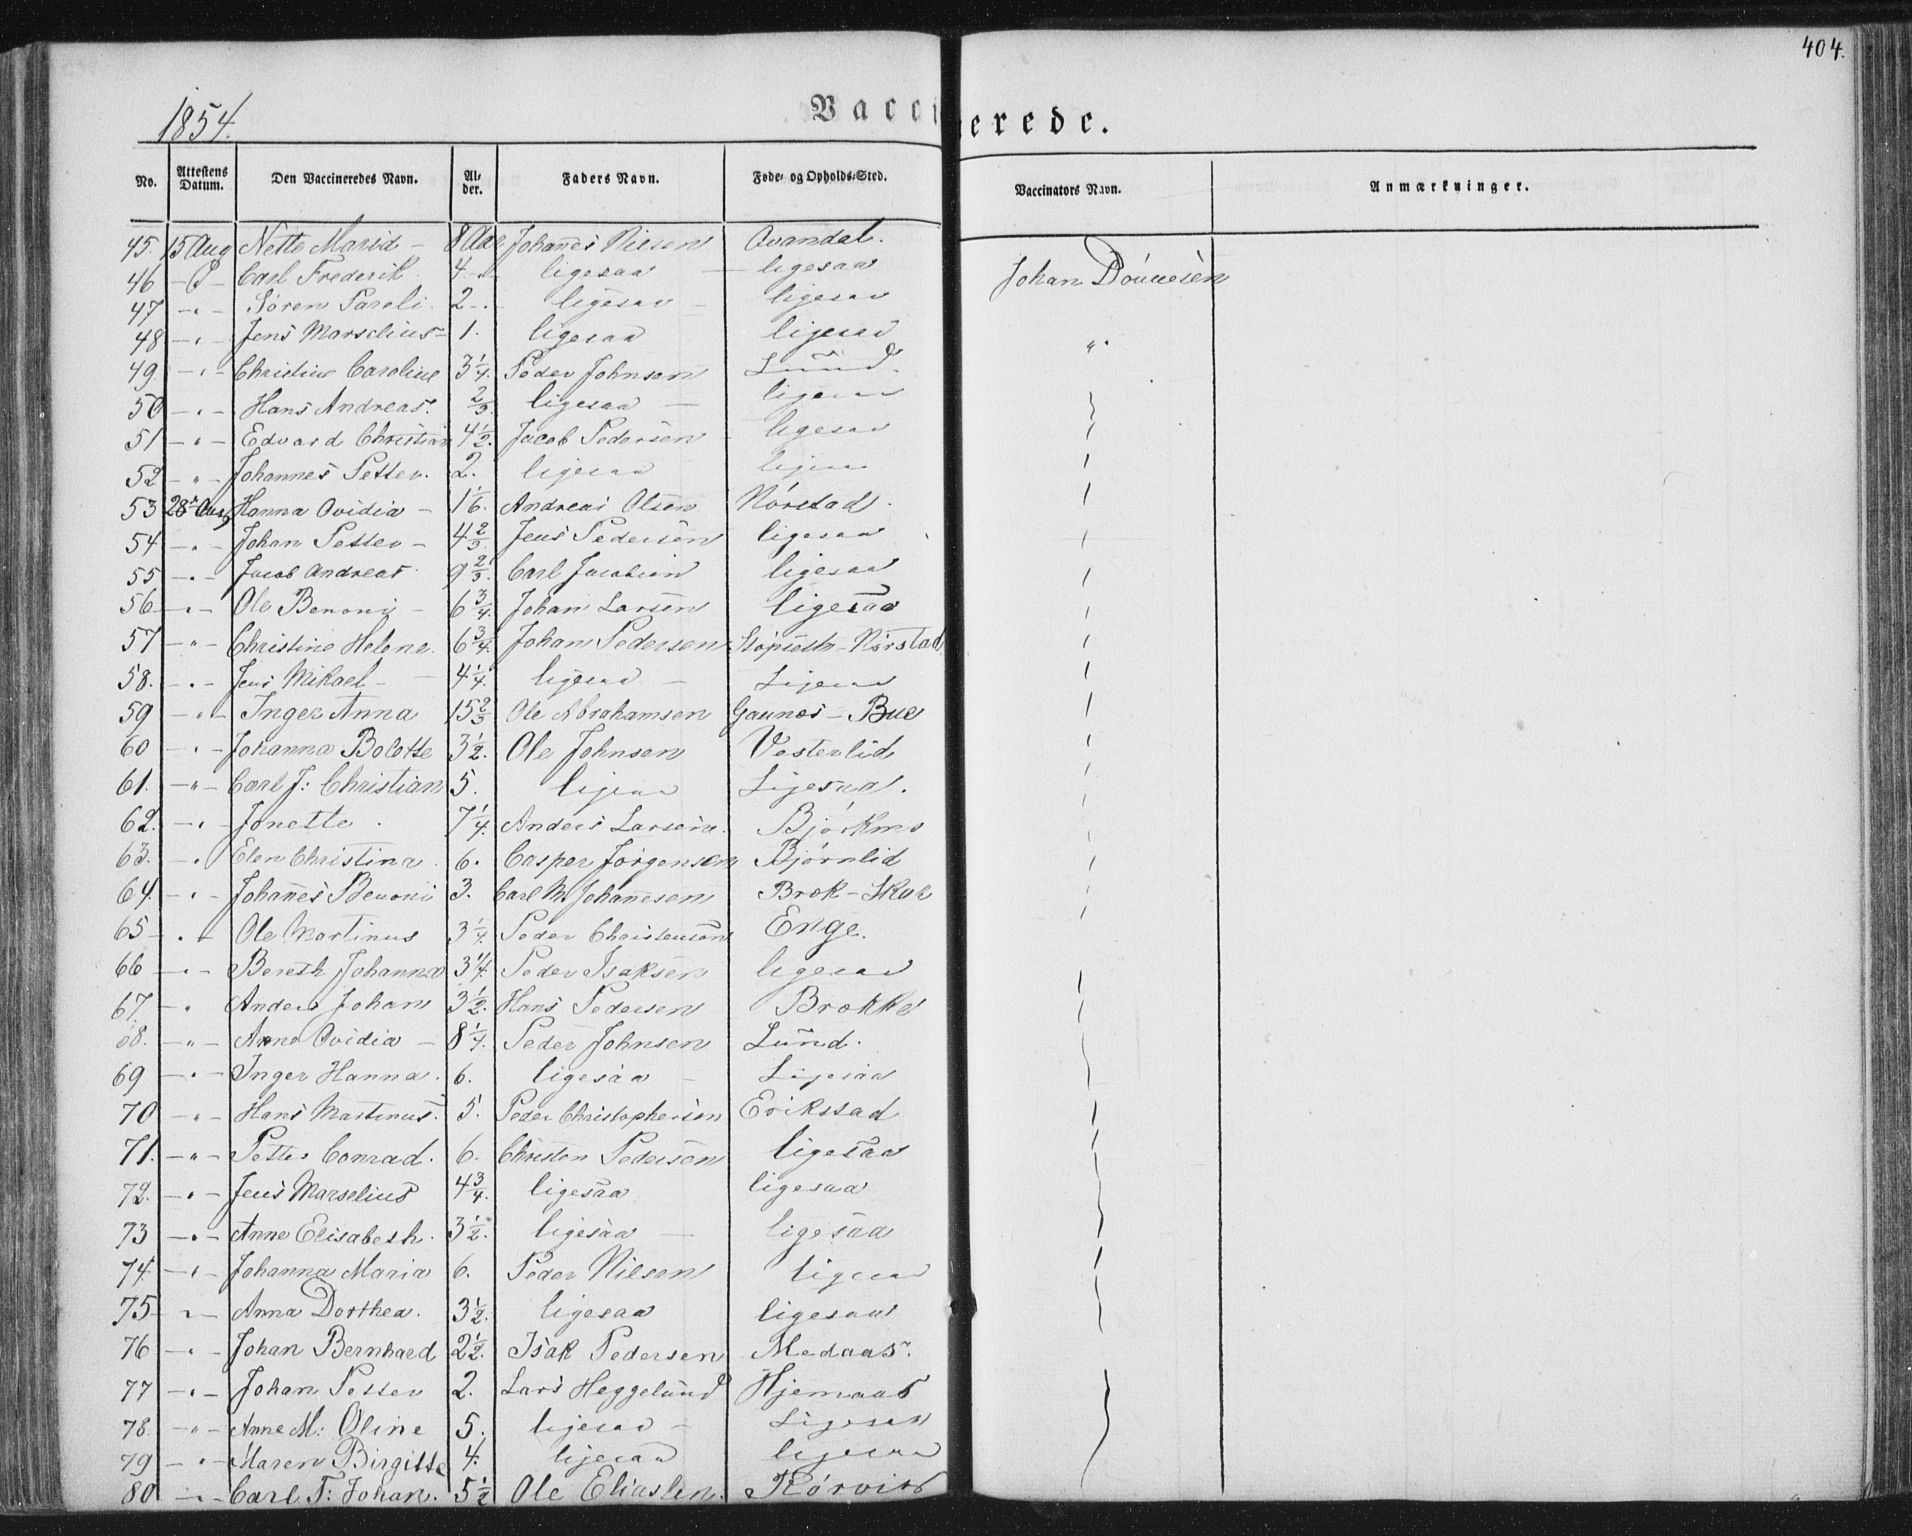 404.
1854.
Vaccinerede.
No. Attestens Datum. Den Vaccineredes Navn. Al- der. Faders Navn. Føde- og Opholds-Sted. Vaccinators Navn. Anmærkninger.
45. 15 Aug Nette Maria - 8 Aar Johañes Nilsen Qvandal.
46 - " - Carl Frederik 4 - ligesaa - ligesaa Johan
47 - " - Søren Pareli. 2 - ligesaa - ligesaa
48 - " - Jens Marselius 1. ligesaa ligesaa "
49. - " - Christine Caroline 3 1/4. Peder Johnsen Lund.
50 - " - Hans Andreas. 2/3. ligesaa - ligesaa
51 - " - Edvard Christian 4 1/2. Jacob Pedersen - ligesaa
52 - " Johannes Petter. 2. ligesaa ligesaa
53 28de Aug Hanna Ovidia - 1 1/6. Andreas Olsen Nórstad.
54 - " - Johan Petter - 4 2/3. Jens Pedersen ligesaa
55 - " - Jacob Andreas 9 2/3. Carl Jacobsen ligesaa
56 - " - Ole Benoni - 6 3/4. Johan Larsen ligesaa
57 - " - Christine Helene. 6 3/4. Johan Pedersen Nórstad
58. - " - Jens Mikael - 4 1/4. ligesaa - Ligesaa
59 - " - Inger Anna 15 2/3 Ole Abrahamsen Gaunes - Bue
60 - " - Johanna Bolette 3 1/2. Ole Johnsen Vesterlid
61. - " - Carl J: Christian 5. ligesaa Ligesaa.
62. - " - Jonette. 7 1/4. Anders Larsen.
63. - " Elen Christina 6. Casper Jørgensen Bjørnlid
64. - " - Johañes Benoni 3. Carl M. Johañesen
65 - " - Ole Martinus 3 1/4. Peder Christensen Enge.
66 - " - Bereth Johanna 3 1/4. Peder Isaksen ligesaa
67. - " Anders Johan 3 1/2. Hans Pedersen Brokke
68. - " - Anne Ovidia - 8 1/4. Peder Johnsen Lund.
69 - " - Inger Hanna. 6. ligesaa - Ligesaa
70 - " - Hans Martinus. 5. Peder Christophersen Erikstad
71. - " - Petter Conrad. 6. Christen Pedersen ligesaa
72. - " - Jens Marselius 4 3/4. ligesaa ligesaa
73 - " - Anne Elisabeth. 3 1/2. ligesaa - ligesaa
74. - " - Johanna Maria 6. Peder Nilsen ligesaa
75 - " - Anna Dorthea. 3 1/2. ligesaa ligesaa
76 - " - Johan Bernhard 2 1/2. Isak Pedersen Medaas.
77 - " - Johan Petter 2. Lars Heggelund Hjemaas
78. - " - Anne M: Oline 5. ligesaa - Ligesaa
79 - " - Maren Birgitte 4. ligesaa ligesaa
80 - " - Carl T: Johan. 5 1/2 Ole Eliassen.